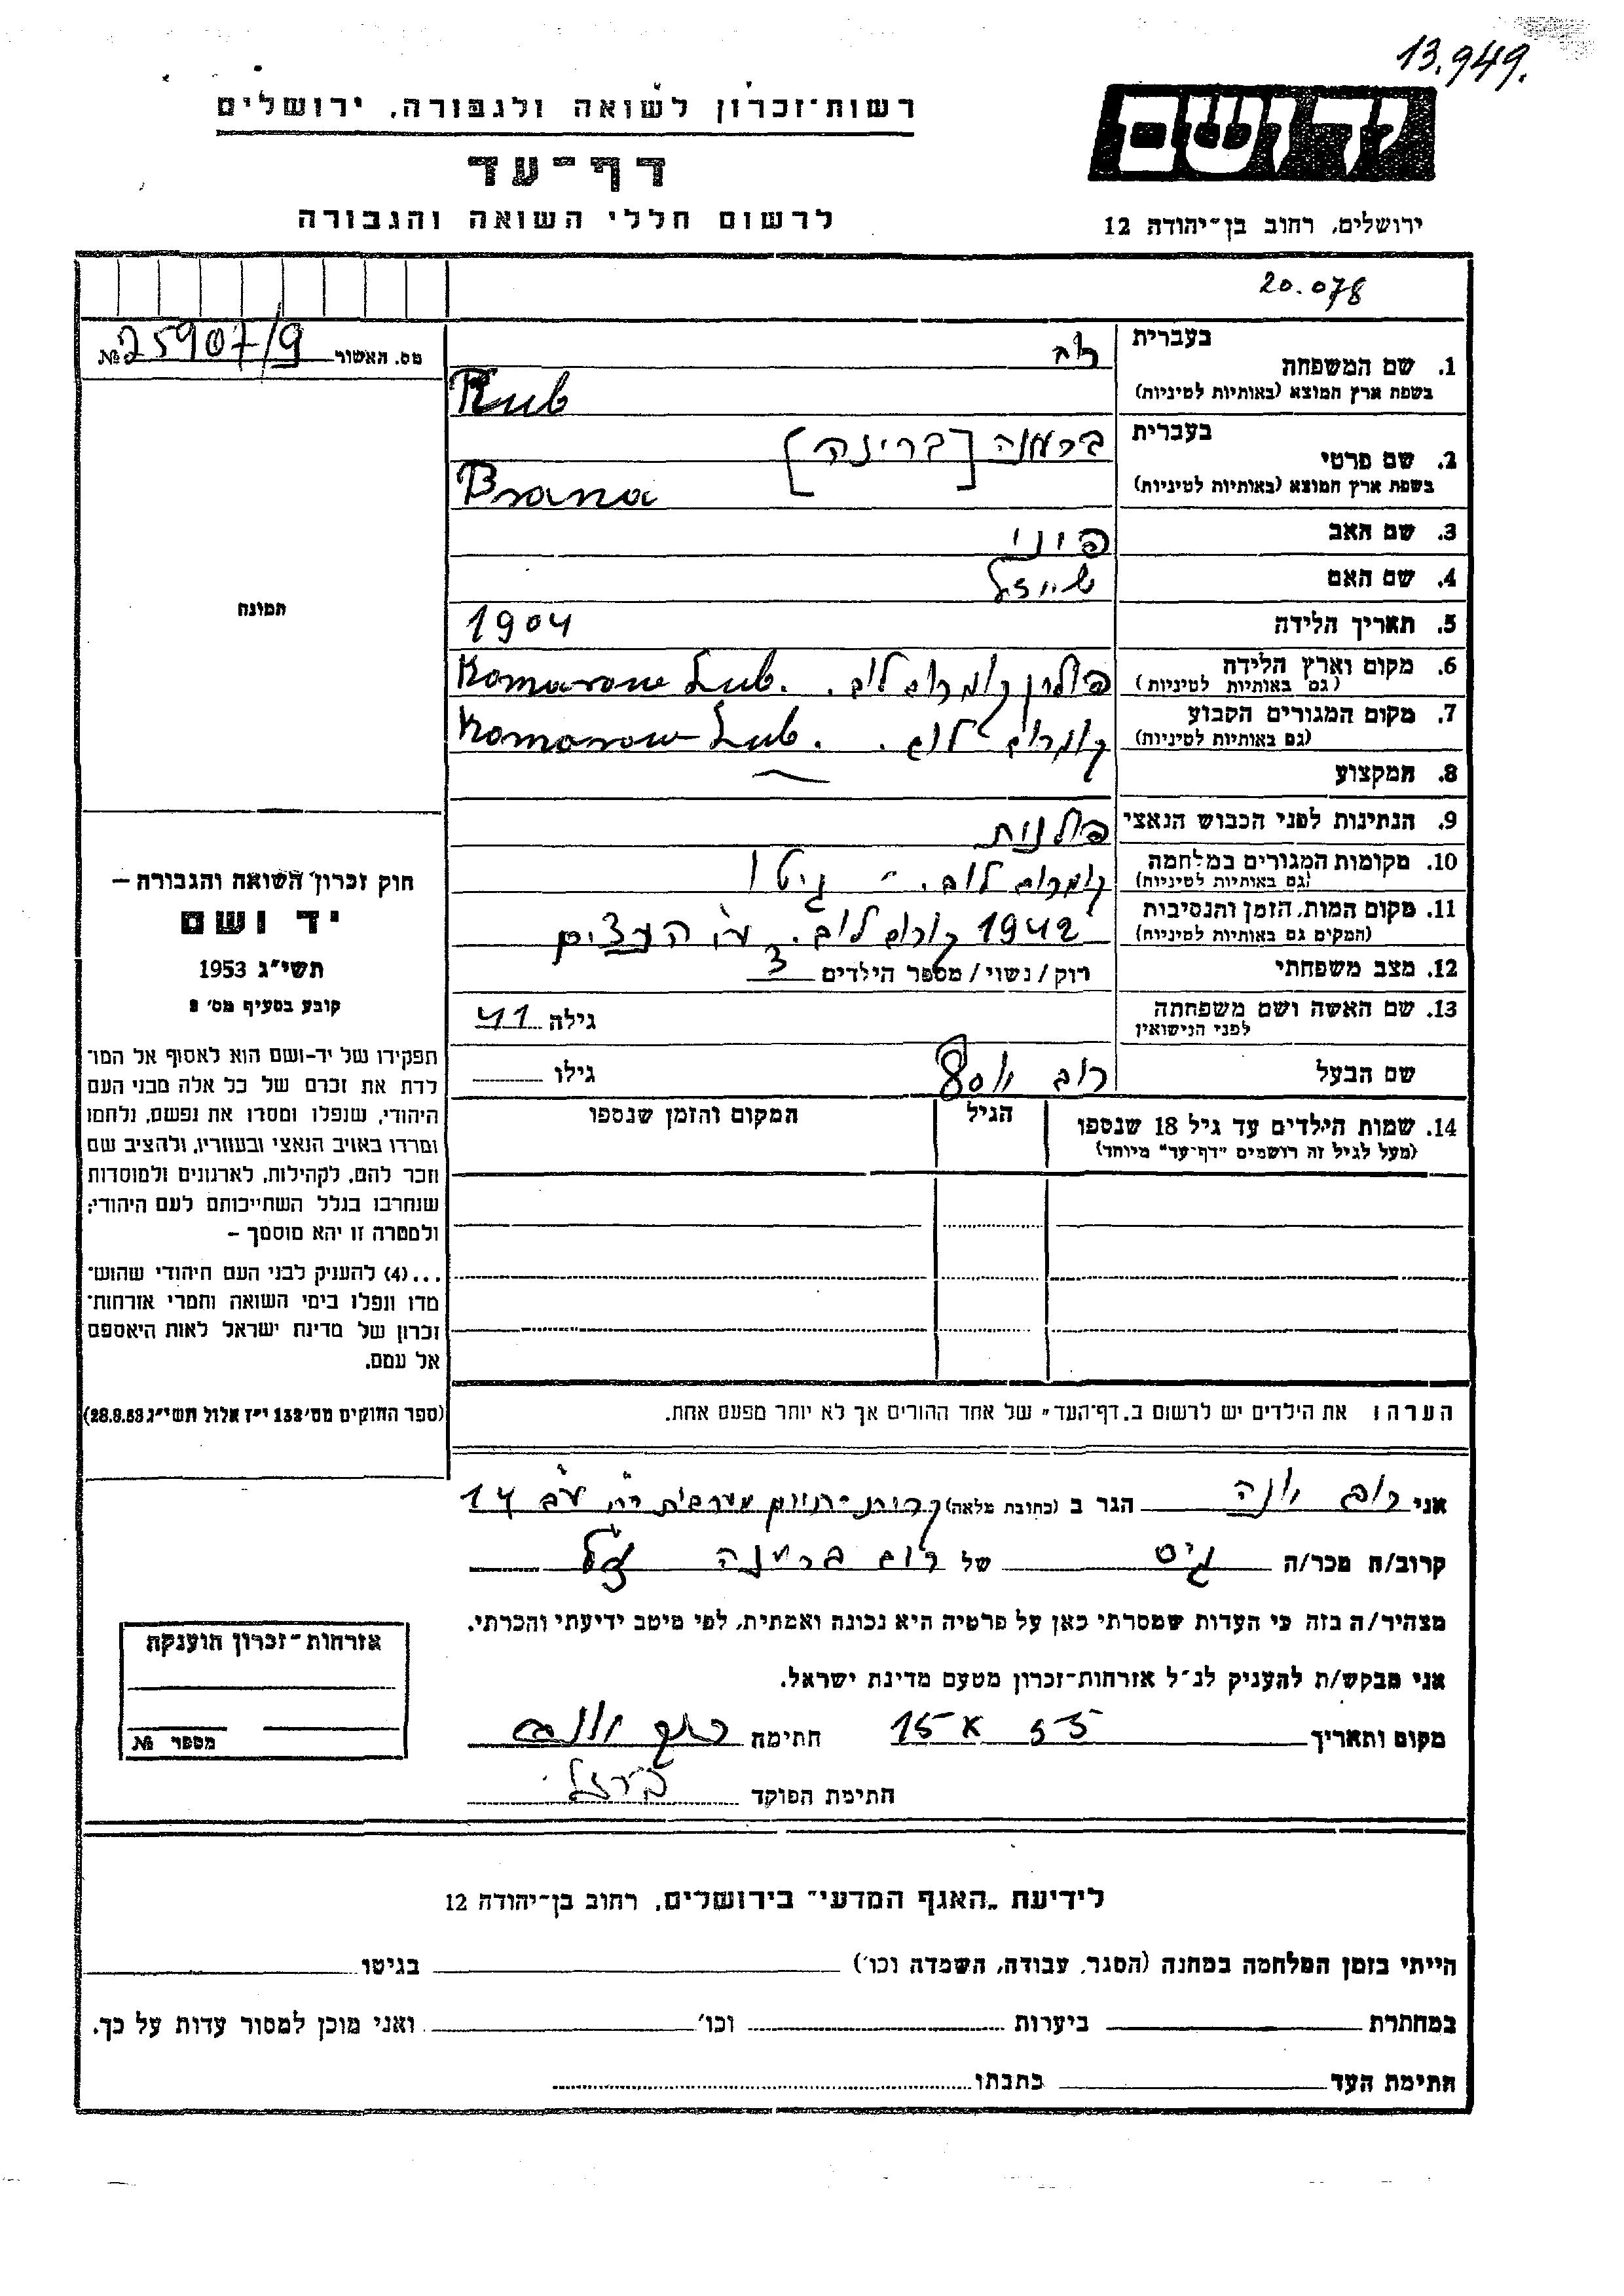 13.949.
רשות־זכרון לשואה ולגבורה, ירושלים
דף־עד
לרשום חללי השואה והגבורה
יד ושם
ירושלים, רחוב בן־יהודה 12
20.078
מס. האשור 25907/9 №
1. שם המשפחה
בעברית רוב
בשפת ארץ המוצא (באותיות לטיניות) Rub
2. שם פרטי
בעברית [ברינה]
בשפת ארץ המוצא (באותיות לטיניות) Brana
3. שם האב
4. שם האם
5. תאריך הלידה 1904
6. מקום וארץ הלידה
(גם באותיות לטיניות) פולין קומרוב לוב. Komarow Lub.
7. מקום המגורים הקבוע
(גם באותיות לטיניות) קומרוב לוב. Komarow Lub.
8. המקצוע —
9. הנתינות לפני הכבוש הנאצי פולנית
10. מקומות המגורים במלחמה
(גם באותיות לטיניות) קומרוב לוב. - גיטו
11. מקום המות, הזמן והנסיבות
(המקום גם באותיות לטיניות) 1942 לוב. ע״י הנאצים
12. מצב משפחתי רוק/נשוי/מספר הילדים 3
13. שם האשה ושם משפחתה
לפני הנישואין גילה 41
שם הבעל רוב גילו
14. שמות הילדים עד גיל 18 שנספו
(מעל לגיל זה רושמים "דף־עד" מיוחד)
הגיל
המקום והזמן שנספו
הערה: את הילדים יש לרשום ב„דף־העד" של אחד ההורים אך לא יותר מפעם אחת.
תמונה
חוק זכרון השואה והגבורה –
יד ושם
תשי״ג 1953
קובע בסעיף מס׳ 2
תפקידו של יד-ושם הוא לאסוף אל המו־
לדת את זכרם של כל אלה מבני העם
היהודי, שנפלו ומסרו את נפשם, נלחמו
ומרדו באויב הנאצי ובעוזריו, ולהציב שם
וזכר להם, לקהילות, לארגונים ולמוסדות
שנחרבו בגלל השתייכותם לעם היהודי;
ולמטרה זו יהא מוסמך –
...(4) להעניק לבני העם היהודי שהוש־
מדו ונפלו בימי השואה והמרי אזרחות־
זכרון של מדינת ישראל לאות היאספם
אל עמם.
(ספר החוקים מס׳ 132 י״ז אלול תשי״ג 28.8.53)
אני רוב יונה הגר ב (כתובת מלאה) 14
קרוב/ה מכר/ה גיס של רוב בריינה ז״ל
מצהיר/ה בזה כי העדות שמסרתי כאן על פרטיה היא נכונה ואמתית, לפי מיטב ידיעתי והכרתי.
אני מבקש/ת להעניק לנ״ל אזרחות־זכרון מטעם מדינת ישראל.
מקום ותאריך 15 X 55 חתימה רוב יונה
חתימת הפוקד
אזרחות־זכרון הוענקה
מספר №
לידיעת „האגף המדעי" בירושלים, רחוב בן־יהודה 12
הייתי בזמן המלחמה במחנה (הסגר, עבודה, השמדה וכו׳) בגיטו
במחתרת ביערות וכו׳ ואני מוכן למסור עדות על כך.
חתימת העד כתבתו